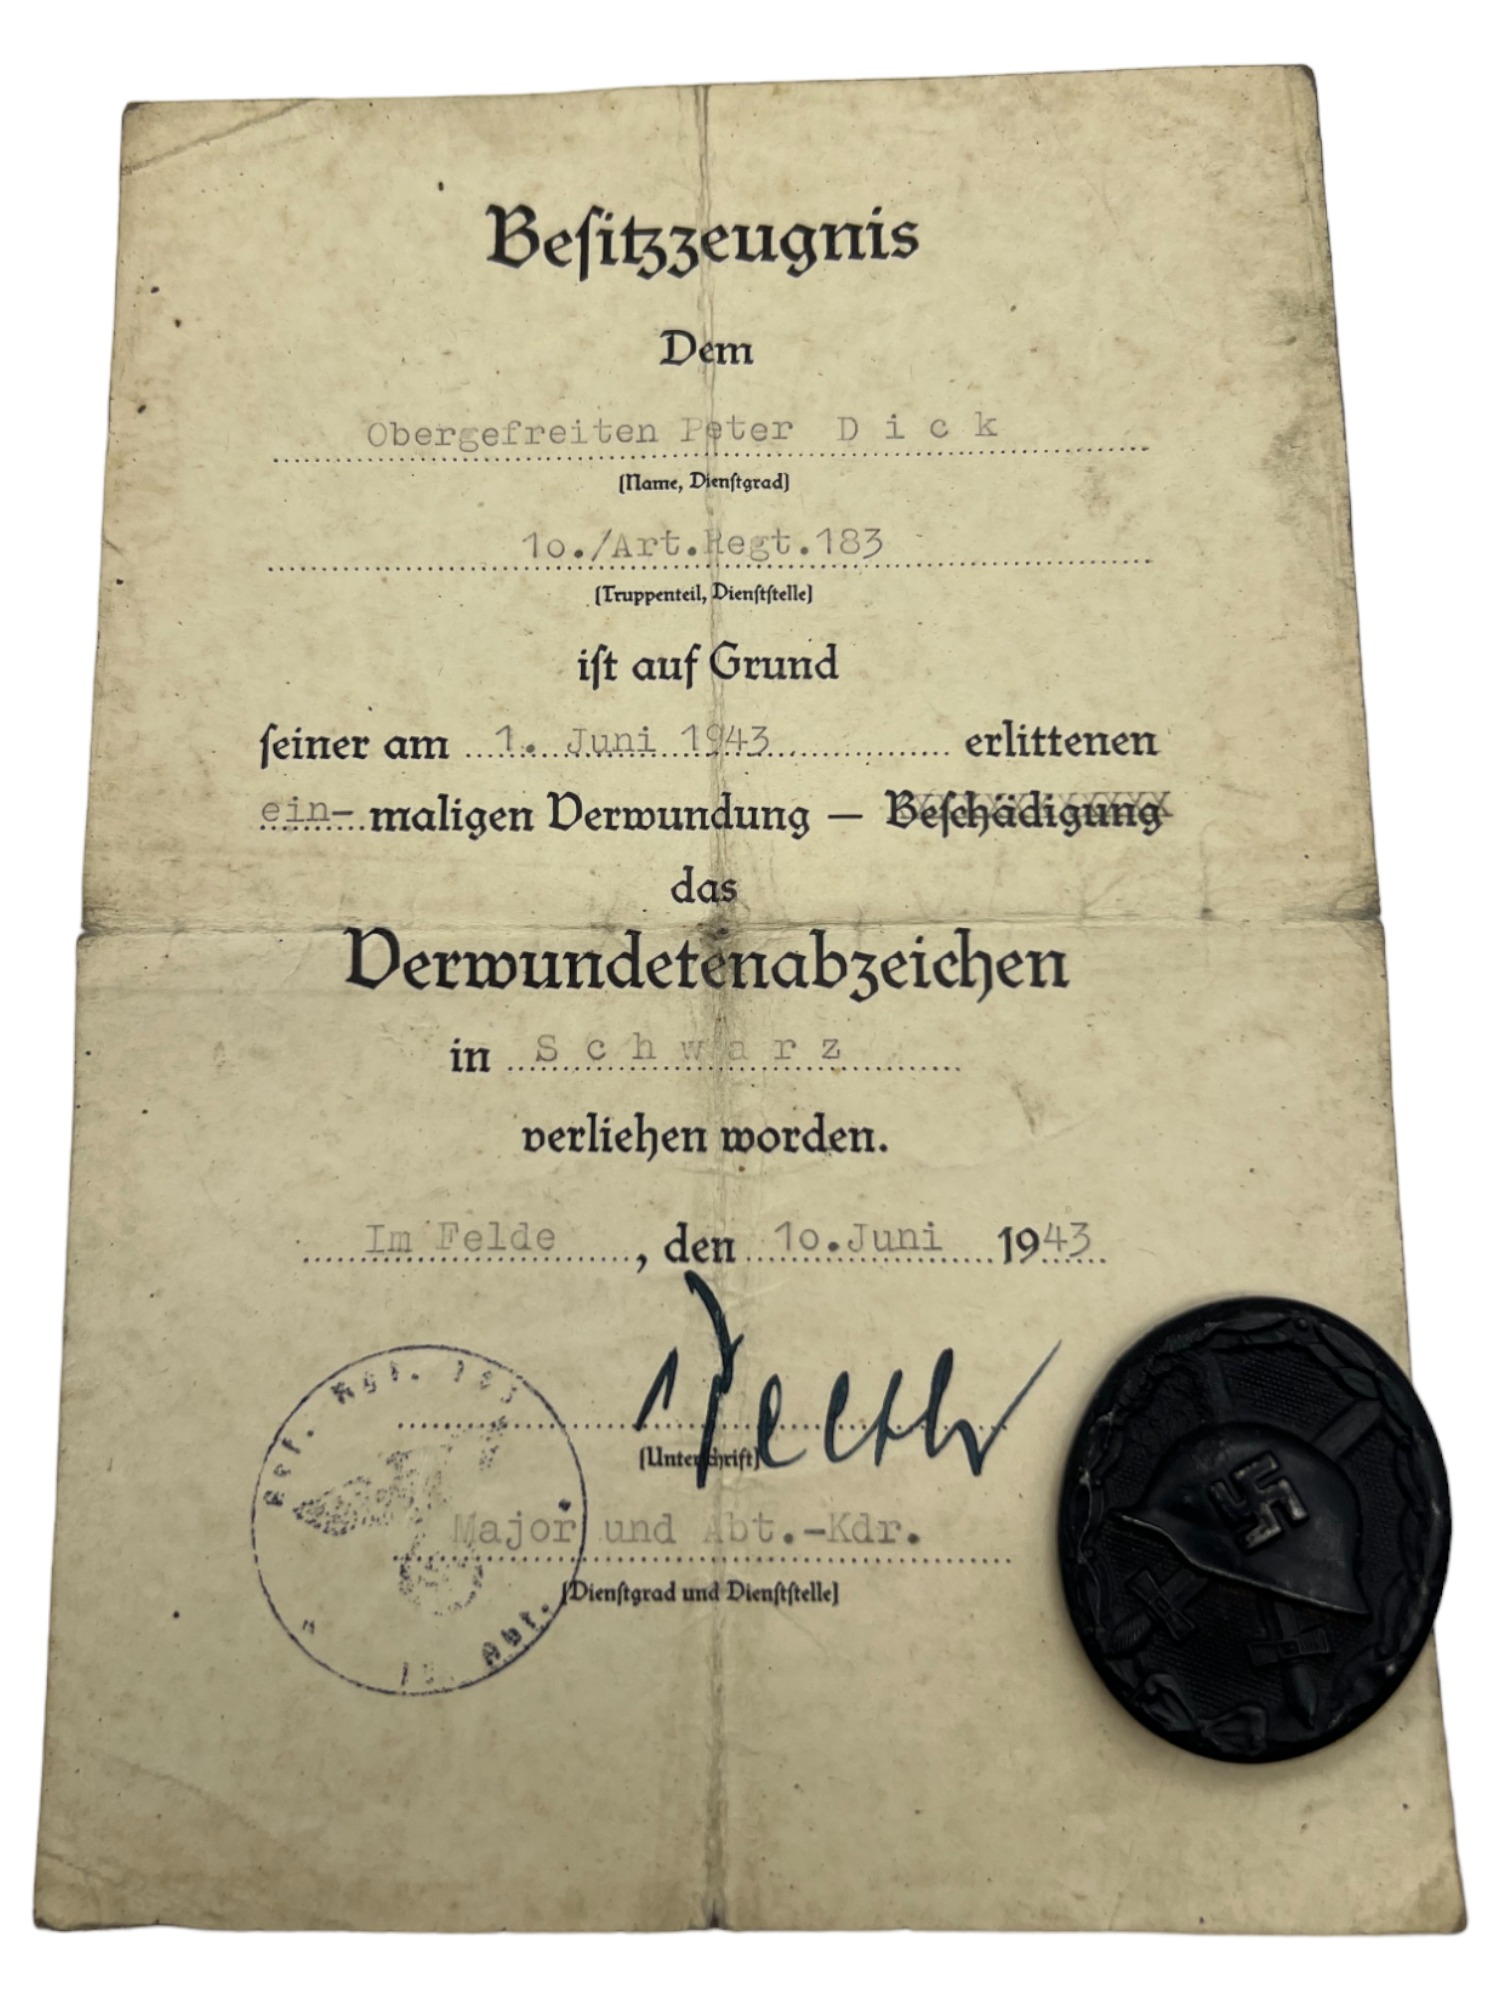 Besitzzeugnis
Dem
Obergefreiten Peter D i c k
(Name, Dienstgrad)
1o./Art.Regt.183
(Truppenteil, Dienststelle)
ist auf Grund
seiner am 1. Juni 1943 erlittenen
ein- maligen Verwundung — Beschädigung
das
Verwundetenabzeichen
in S c h w a r z
verliehen worden.
Im Felde, den 1o.Juni 1943
(Unterschrift)
Major und Abt.-Kdr.
(Dienstgrad und Dienststelle)
Art. Rgt. 183
Abt.